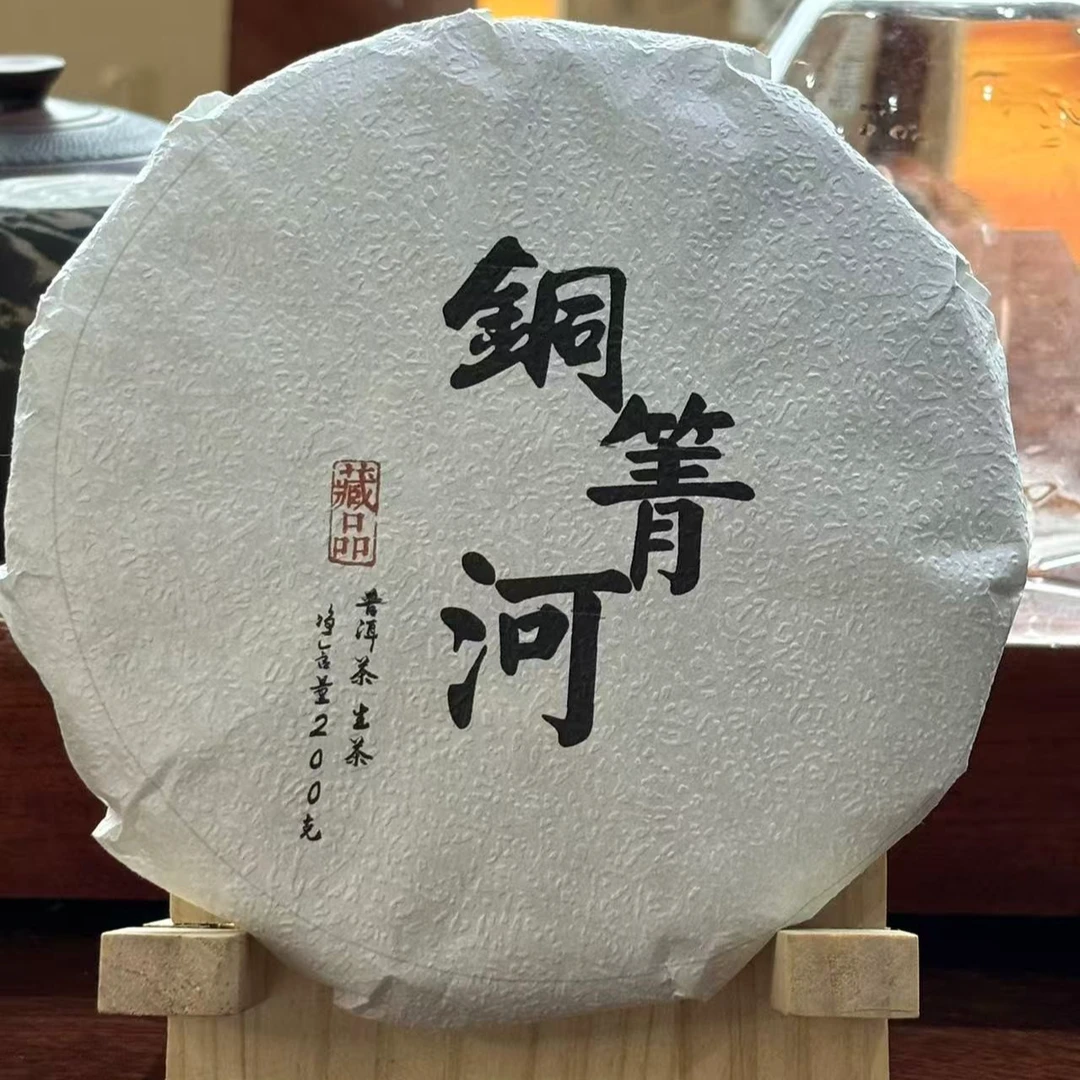 銅箐河
藏品
普洱茶生茶
净含量200克